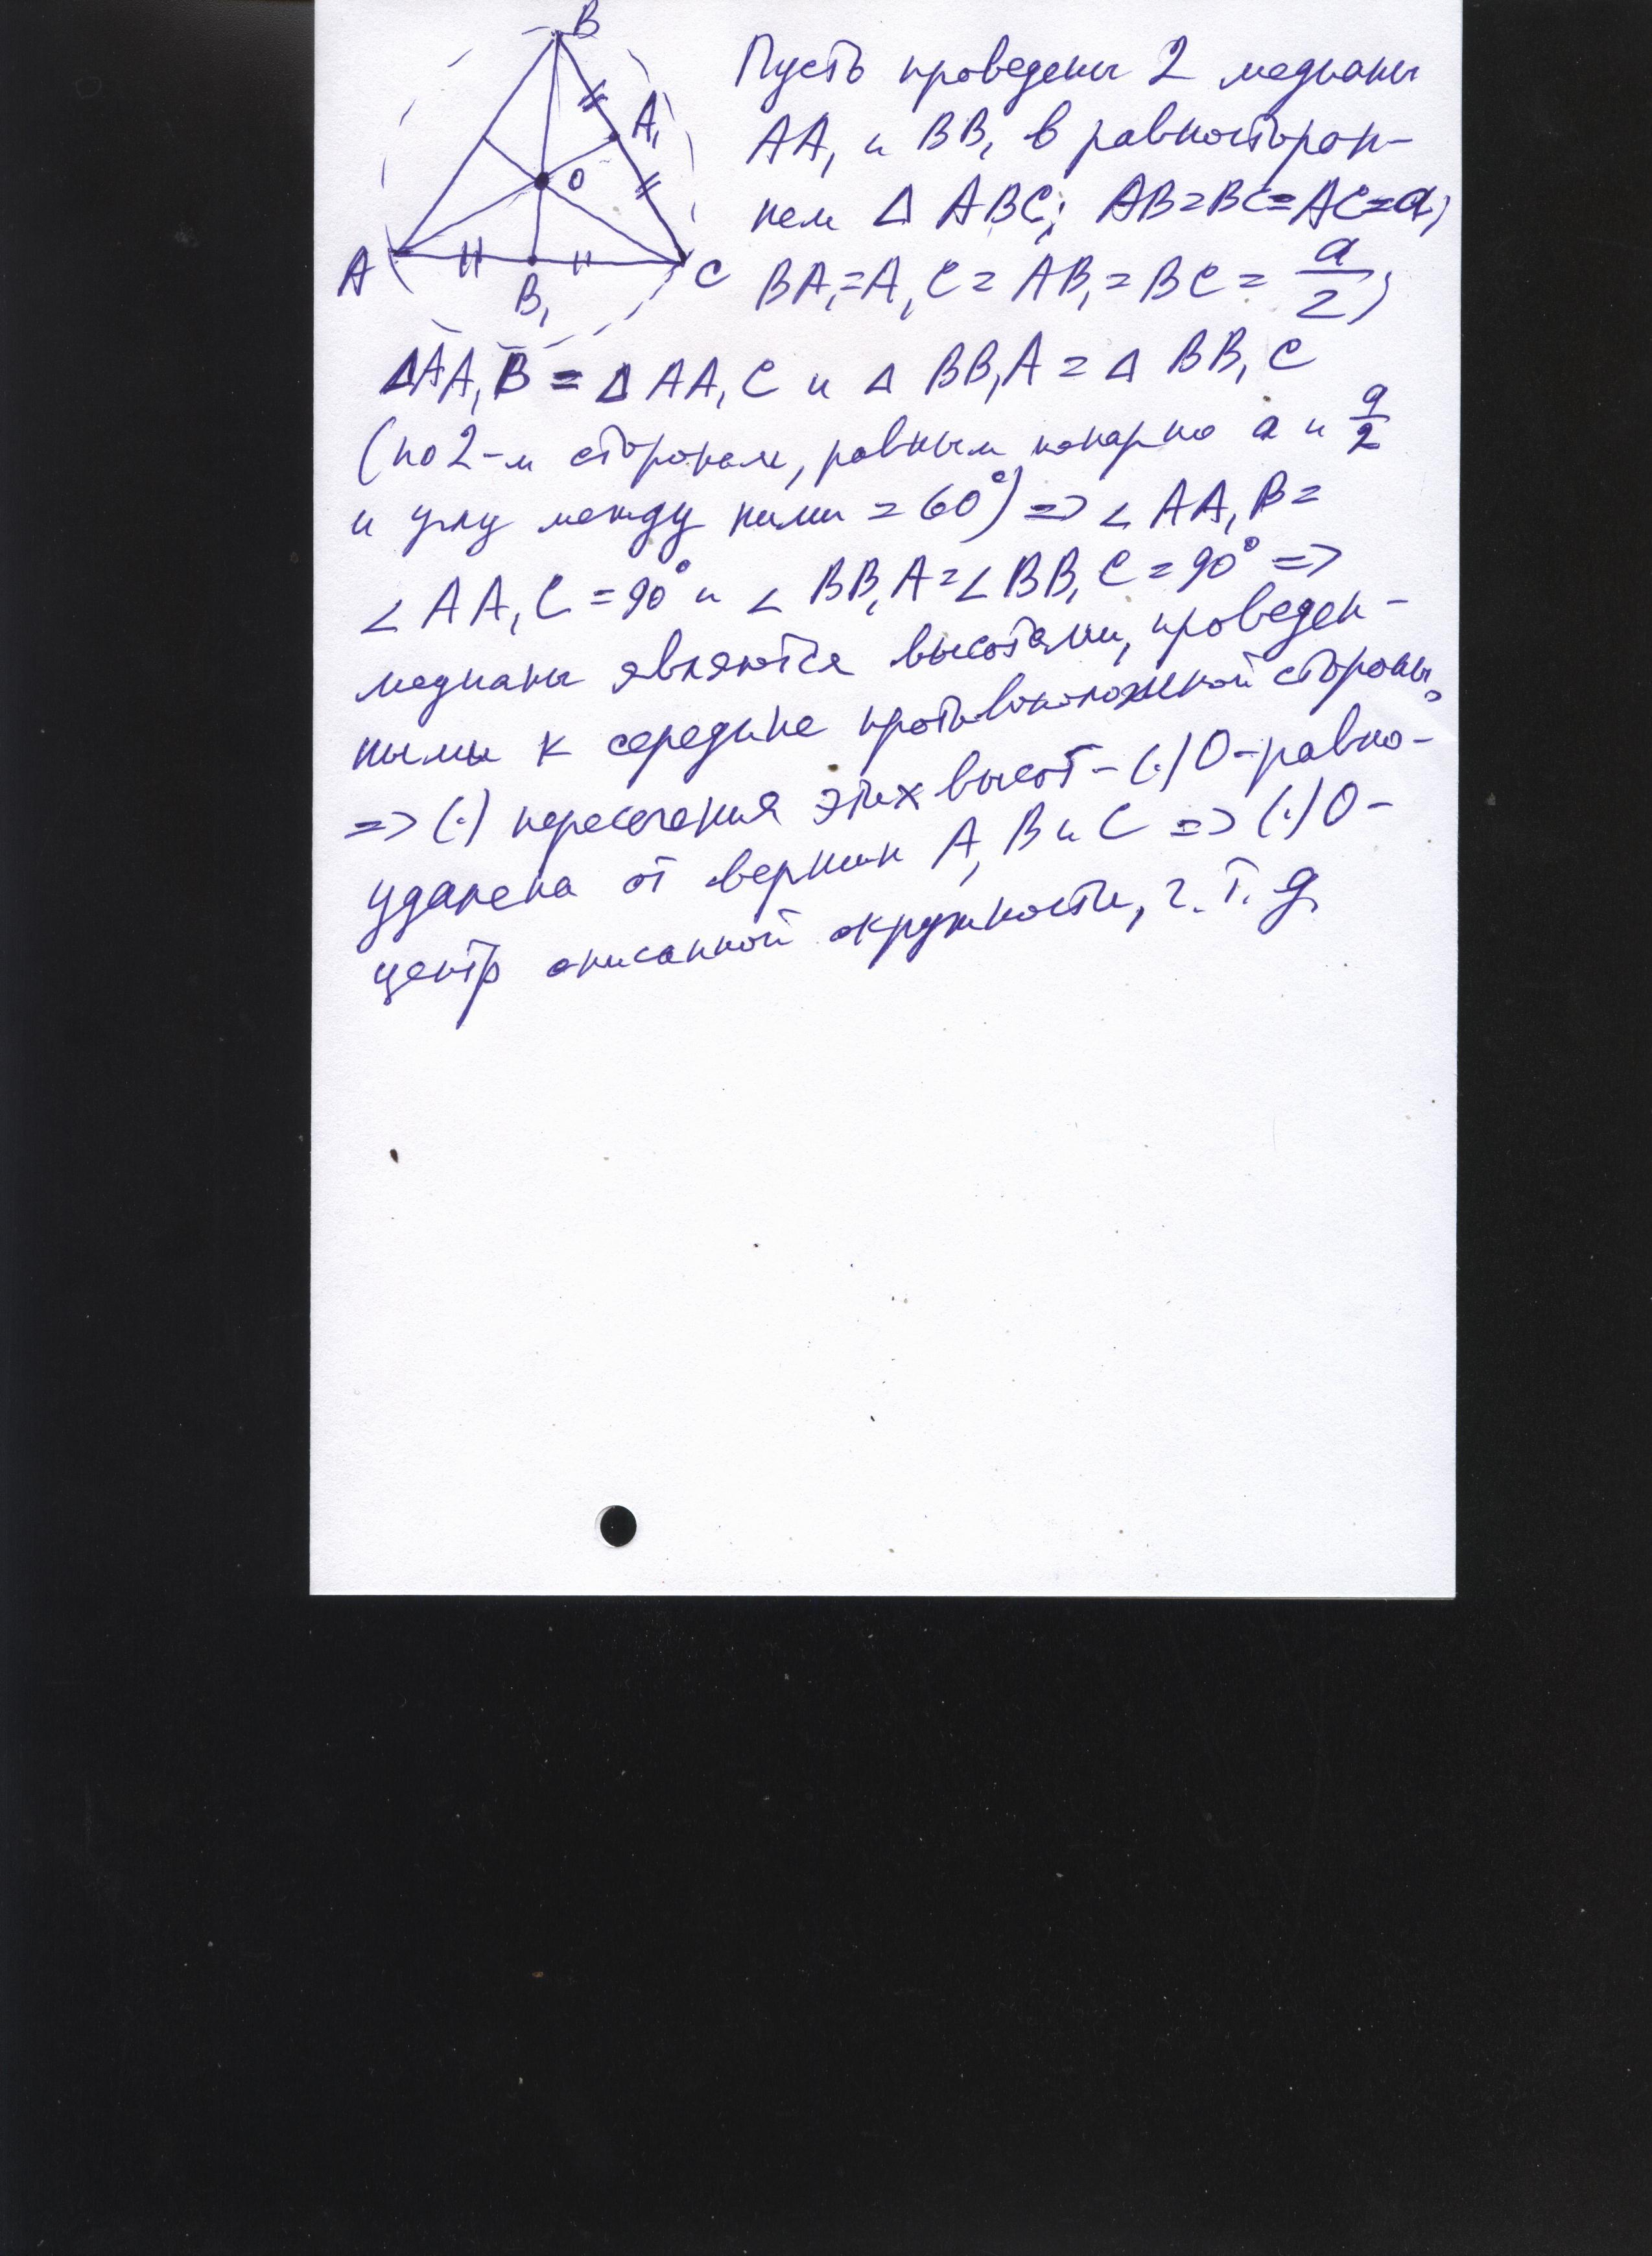 B
A₁
O
A
B₁
C
Пусть проведены 2 медианы
AA₁ и BB₁ в равносторон-
нем Δ ABC; AB=BC=AC=a;
BA₁=A₁C=AB₁=BC=a/2;
ΔAA₁B=Δ AA₁C и Δ BB₁A=Δ BB₁C
(по 2-м сторонам, равным попарно a и a/2
и углу между ними =60°)=>∠ AA₁B=
∠ AA₁C=90° и ∠ BB₁A=∠ BB₁C=90° =>
медианы являются высотами, проведен-
ными к середине противоположной стороны,
=> (·) пересечения этих высот - (·) O - равно-
удалена от вершин A, B и C => (·) O -
центр описанной окружности, ч. т. д.